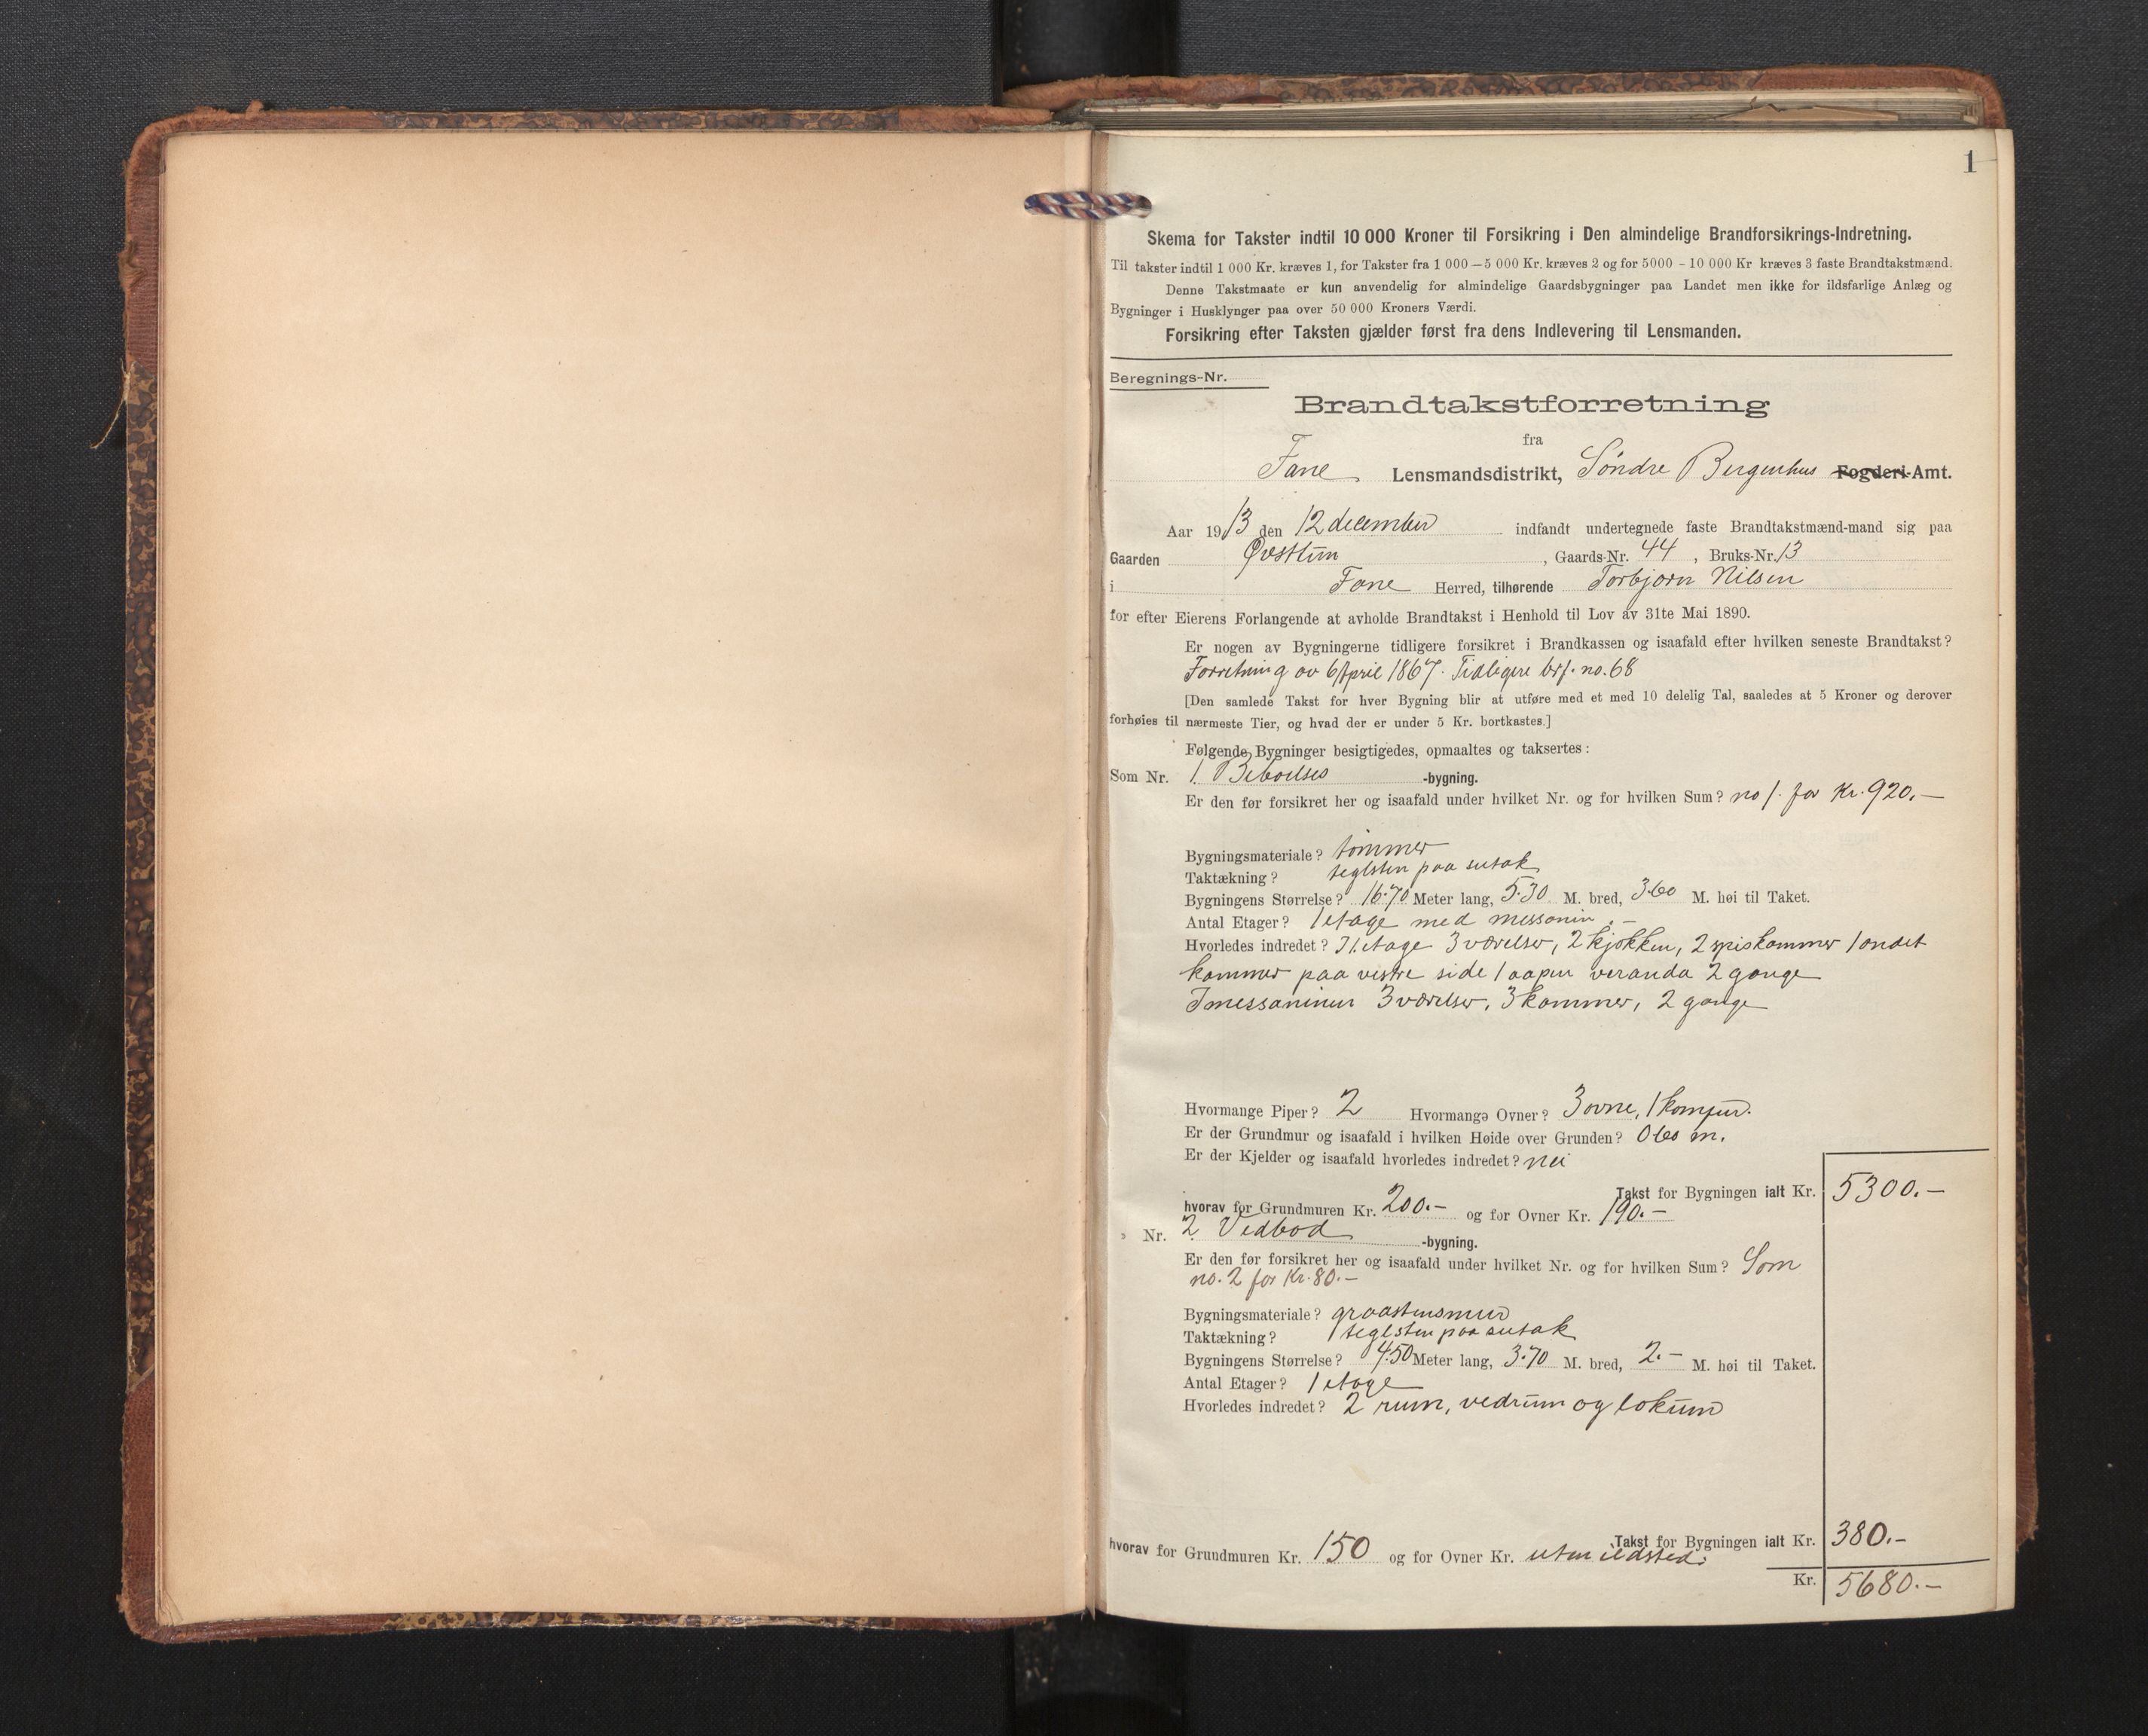 1
Skema for Takster indtil 10 000 Kroner til Forsikring i Den almindelige Brandforsikrings-Indretning.
Til takster indtil 1 000 Kr. kræves 1, for Takster fra 1 000 — 5 000 Kr. kræves 2 og for 5000 - 10 000 Kr kræves 3 faste Brandtakstmænd.
Denne Takstmaate er kun anvendelig for almindelige Gaardsbygninger paa Landet men ikke for ildsfarlige Anlæg og
Bygninger i Husklynger paa over 50 000 Kroners Værdi.
Forsikring efter Taksten gjælder først fra dens Indlevering til Lensmanden.
Beregnings-Nr.
Brandtakstforretning
fra
Fane Lensmandsdistrikt, Søndre Bergenhus Fogderi-Amt.
Aar 1913 den 12 december indfandt undertegnede faste Brandtakstmænd-mand sig paa
Gaarden Øvsttun, Gaards-Nr. 44, Bruks-Nr. 13
i Fane Herred, tilhørende Torbjørn Nilsen
for efter Eierens Forlangende at avholde Brandtakst i Henhold til Lov av 31te Mai 1890.
Er nogen av Bygningerne tidligere forsikret i Brandkassen og isaafald efter hvilken seneste Brandtakst?
Forretning av 6 April 1867. Tidligere brf. no. 68
[Den samlede Takst for hver Bygning blir at utføre med et med 10 delelig Tal, saaledes at 5 Kroner og derover
forhøies til nærmeste Tier, og hvad der er under 5 Kr. bortkastes.]
Følgende Bygninger besigtigedes, opmaaltes og taksertes:
Som Nr. 1. Beboelses -bygning.
Er den før forsikret her og isaafald under hvilket Nr. og for hvilken Sum? no 1. for Kr. 920.—
Bygningsmateriale? tømmer
Taktækning? teglsten paa sutak
Bygningens Størrelse? 16.70 Meter lang, 5.30 M. bred, 3.60 M. høi til Taket.
Antal Etager? 1 etage med messanin.—
Hvorledes indredet? I 1. etage 3 værelser, 2 kjøkken, 2 spiskammer 1 andet
kammer paa vestre side 1 aapen veranda 2 gange
I messaninen 3 værelser, 3 kammer, 2 gange
Hvormange Piper? 2 Hvormange Ovner? 3 ovne, 1 komfur.
Er der Grundmur og isaafald i hvilken Høide over Grunden? 0 60 m.
Er der Kjelder og isaafald hvorledes indredet? nei
Takst for Bygningen ialt Kr. 5300.—
hvorav for Grundmuren Kr. 200.— og for Ovner Kr. 190.—
» Nr. 2. Vedbod -bygning.
Er den før forsikret her og isaafald under hvilket Nr. og for hvilken Sum? Som
no. 2 for Kr. 80.—
Bygningsmateriale? graastensmur
Taktækning? teglsten paa sutak
Bygningens Størrelse? 4.50 Meter lang, 3.70 M. bred, 2.— M. høi til Taket.
Antal Etager? 1 etage
Hvorledes indredet? 2 rum, vedrum og lokum
Takst for Bygningen ialt Kr. 380.—
hvorav for Grundmuren Kr. 150 og for Ovner Kr. uten ildsted.
Kr. 5680.—